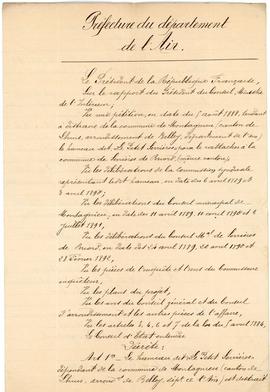 Préfecture du département
de l'Ain.
Le Président de la République Française,
Sur le rapport du Président du Conseil, Ministre
de l'Intérieur,
Vu une pétition, en date du 5 août 1888, tendant
à distraire de la commune de Montagnieu (canton de
Lhuis, arrondissement de Belley, département de l'Ain)
le hameau dit Le Petit Serrières, pour le rattacher à la
commune de Serrières de Briord (même canton),
Vu les délibérations de la Commission syndicale
représentant ledit hameau, en date des 6 avril 1879 et
3 avril 1892;
Vu les délibérations du Conseil municipal de
Montagnieu, en date des 11 avril 1879, 11 avril 1890 et
juillet 1891,
Vu les délibérations du Conseil M.al de Serrières
de Briord, en date des 24 avril 1879, 20 avril 1890 et
28 février 1892,
Vu les pièces de l'enquête et l'avis du Commissaire
enquêteur,
Vu les plans du projet,
Vu les avis du Conseil général et du Conseil
d'arrondissement et les autres pièces de l'affaire,
Vu les articles 3, 4, 6 et 7 de la loi du 5 avril 1884,
Le Conseil d'Etat entendu
Décrète:
Art 1er Le hameau dit Le Petit Serrières
dépendant de la commune de Montagnieu (canton de
Lhuis, arrond.t de Belley, dép.t de l'Ain), est distrait